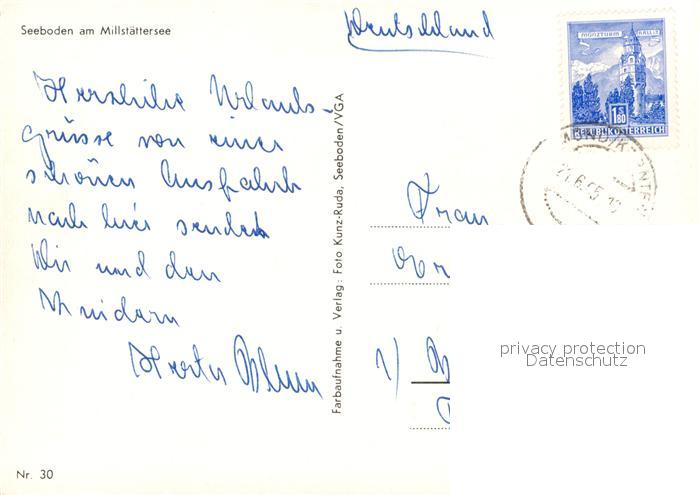 Seeboden am Millstättersee
Deutschland
MÜNZTURM HALL I. T.
1 S 80
REPUBLIK ÖSTERREICH
21.6.65
Herzliche Urlaubs-
grüsse von einer
schönen Ausfahrt
nach hier sendet
Dir und den
Kindern
Herta Blum
Farbaufnahme u. Verlag: Foto Kunz-Ruda, Seeboden/VGA
Frau
privacy protection
Datenschutz
Nr. 30